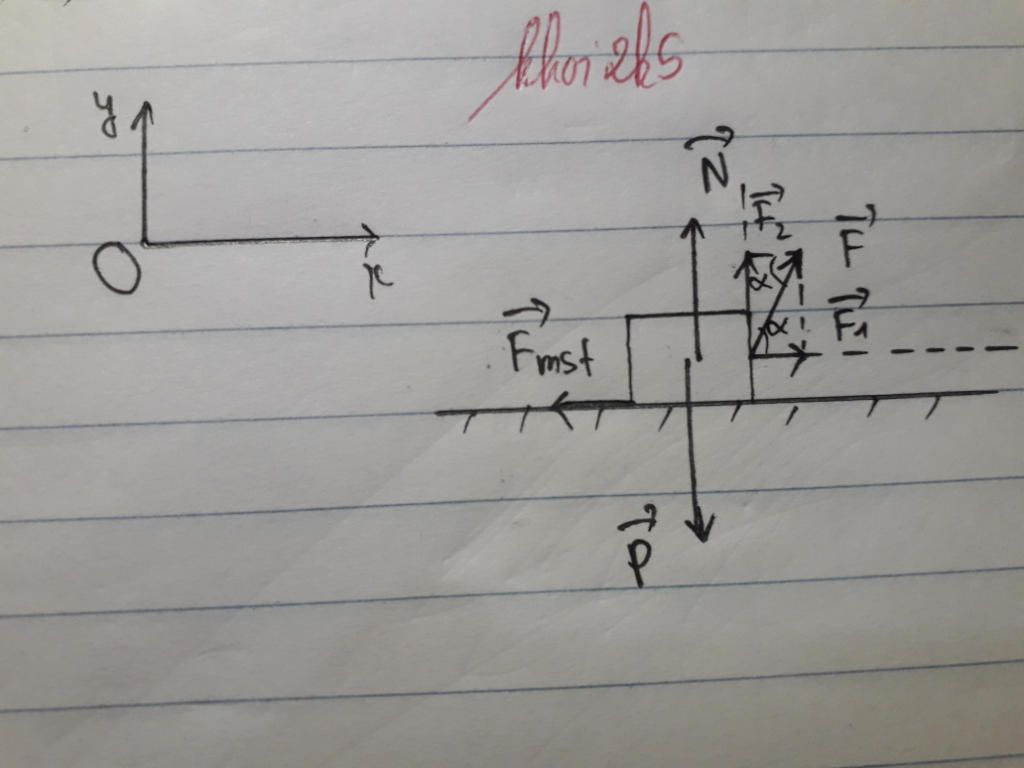 khoi2k5
y
O
x
N
F₂
F
α
α
F₁
Fmst
P